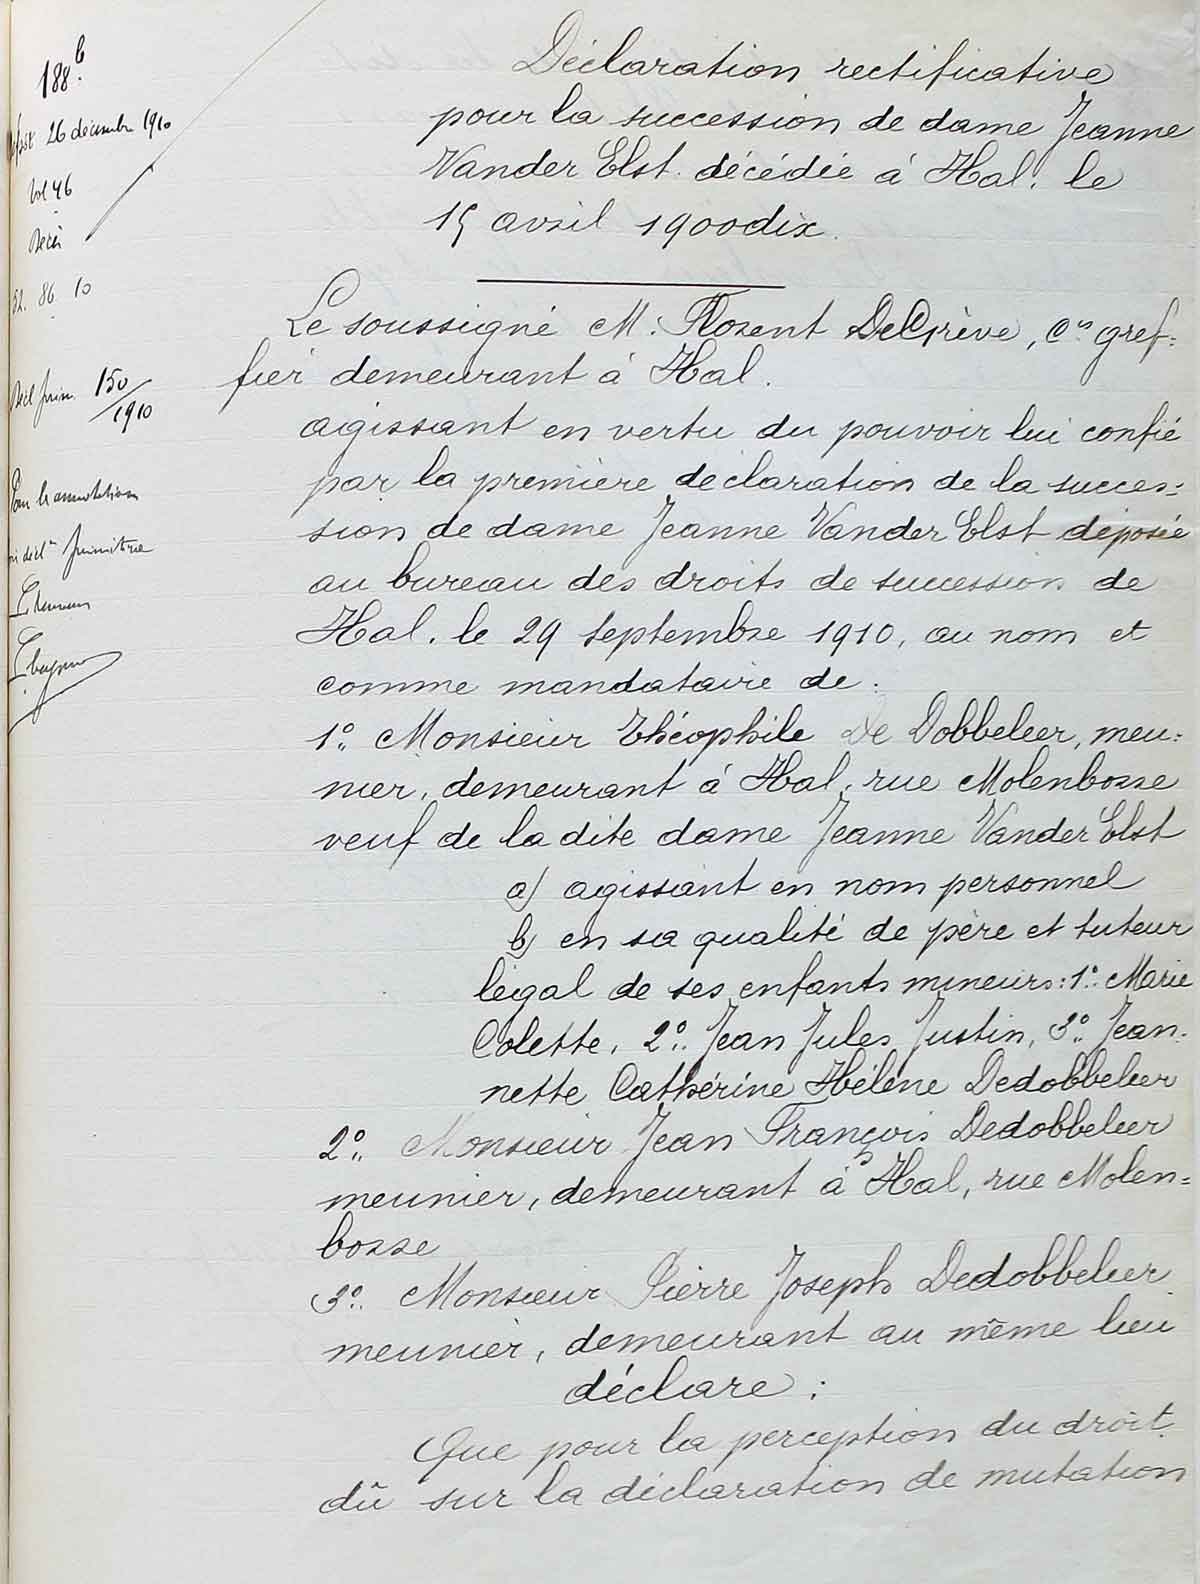 188 b.
26 décembre 1910
Vol 46
52. 86. 10
150/1910
Pour les annotations
décl.on primitive
Déclaration rectificative
pour la succession de dame Jeanne
Vander Elst. décédée à Hal. le
15 avril 1900dix.
Le soussigné M. Florent DeGrève, cn gref=
fier demeurant à Hal.
agissant en vertu du pouvoir lui confié
par la première déclaration de la succes=
sion de dame Jeanne Vander Elst déposée
au bureau des droits de succession de
Hal. le 29 septembre 1910, au nom et
comme mandataire de:
1º. Monsieur Théophile De Dobbeleer, meu=
nier, demeurant à Hal, rue Molenbosse
veuf de la dite dame Jeanne Vander Elst
a) agissant en nom personnel
b) en sa qualité de père et tuteur
légal de ses enfants mineurs: 1º. Marie
Colette, 2º. Jean Jules Justin, 3º. Jean-
nette Cathérine Hélène Dedobbeleer
2º. Monsieur Jean François Dedobbeleer
meunier, demeurant à Hal, rue Molen=
bosse
3º. Monsieur Pierre Joseph Dedobbeleer
meunier, demeurant au même lieu
déclare:
Que pour la perception du droit
dû sur la déclaration de mutation